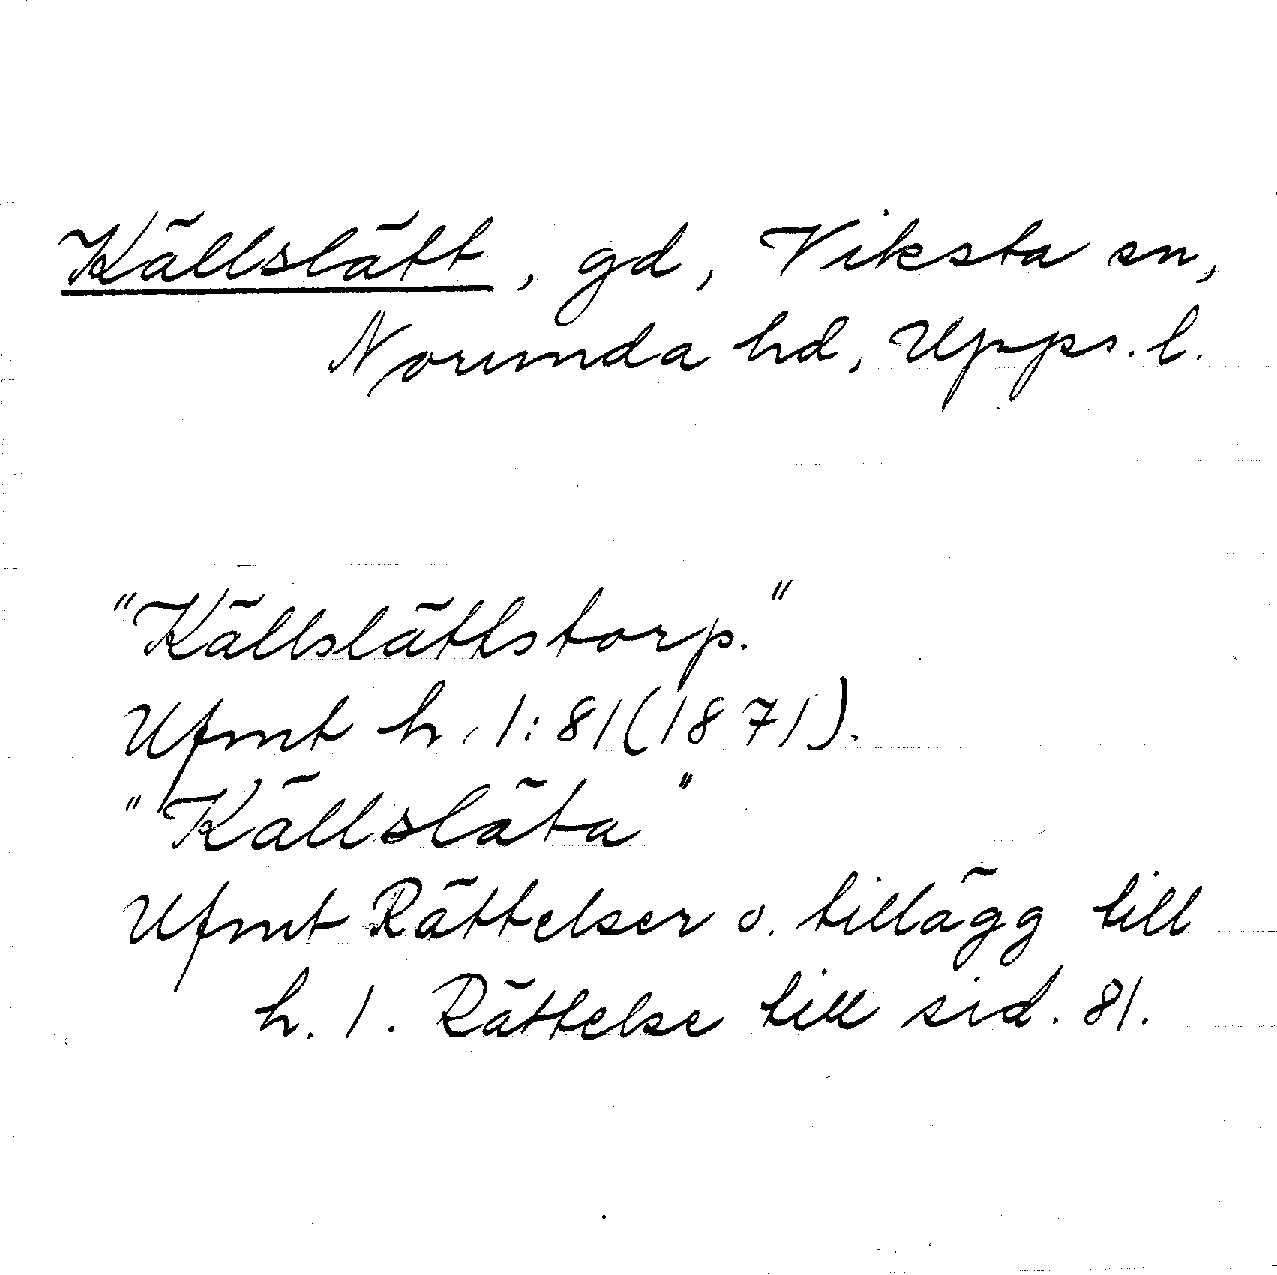 Källslätt, gd, Viksta sn,
Norunda hd, Upps. l.
"Källslättstorp."
Ufmt h. 1:81(1871).
"Källsläta"
Ufmt Rättelser o. tillägg till
h. 1. Rättelse till sid. 81.